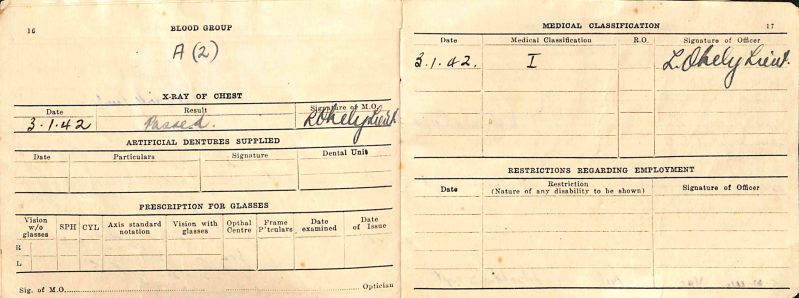 16
BLOOD GROUP
A (2)
X-RAY OF CHEST
Date Result Signature of M.O.
3.1.42 Passed. Okely Lieut.
ARTIFICIAL DENTURES SUPPLIED
Date Particulars Signature Dental Unit
PRESCRIPTION FOR GLASSES
Vision w/o glasses SPH CYL Axis standard notation Vision with glasses Opthal Centre Frame P'tculars Date examined Date of Issue
R
L
Sig. of M.O. Optician
MEDICAL CLASSIFICATION 17
Date Medical Classification R.O. Signature of Officer
3.1.42. I L. Okely Lieut.
RESTRICTIONS REGARDING EMPLOYMENT
Date Restriction (Nature of any disability to be shown) Signature of Officer